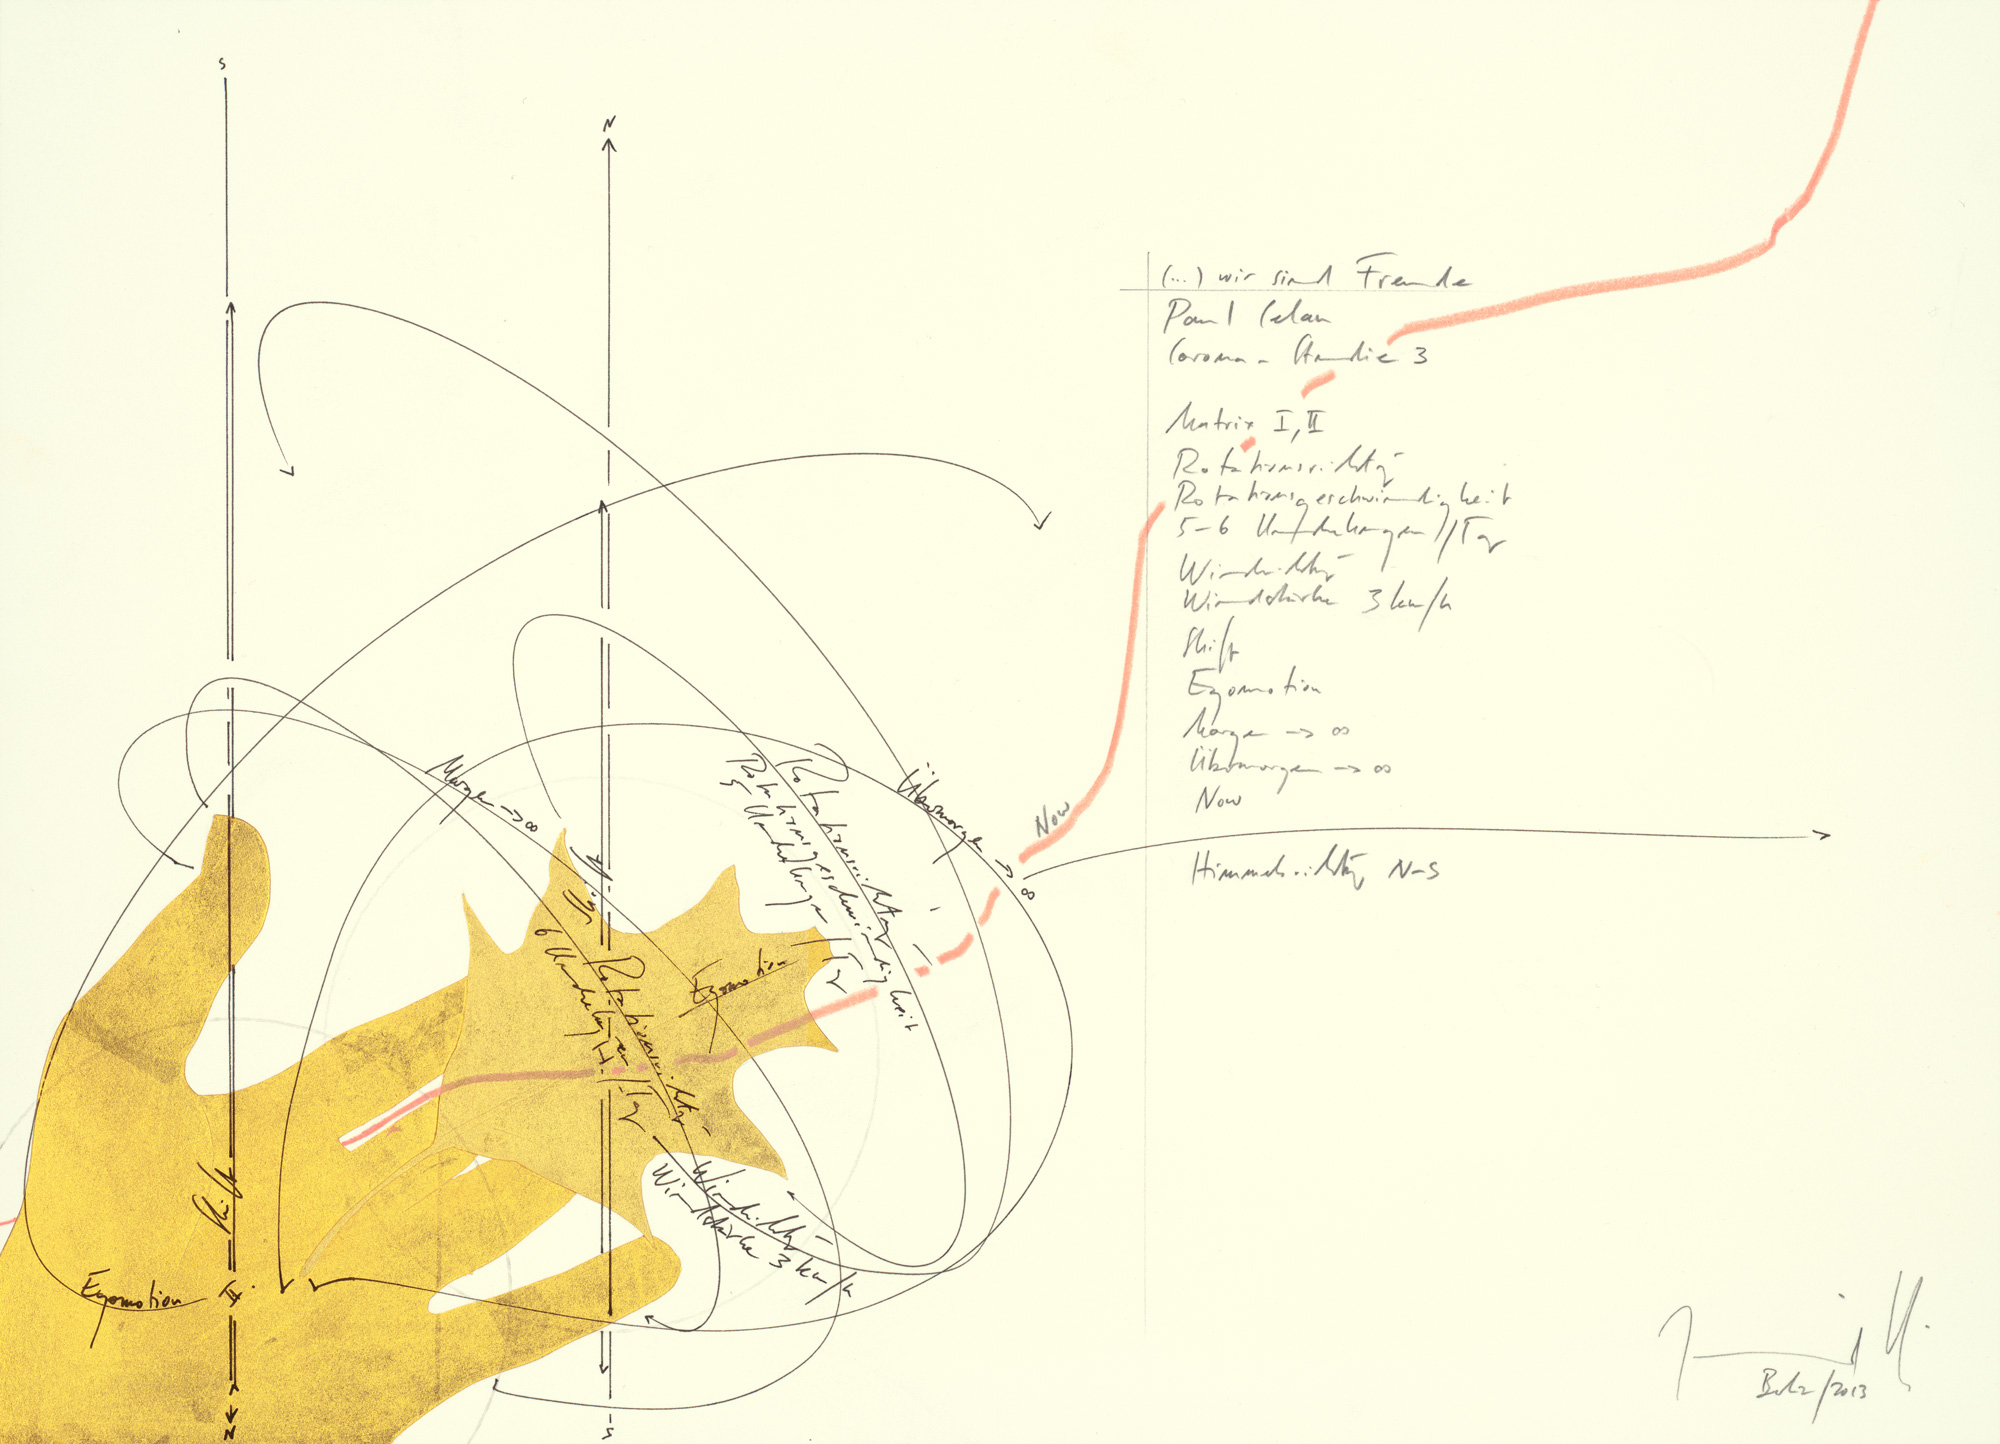 S
N
(...) wir sind Freunde
Paul Celan
Corona - Studie 3
Matrix I, II
Rotationsrichtg
Rotationsgeschwindigkeit
5-6 Umdrehungen//Tag
Windrichtg
Windstärke 3 km/h
Shift
Egomotion
Morgen -> ∞
Übermorgen -> ∞
Now
Himmelsrichtg N-S
Morgen -> ∞
Übermorgen -> ∞
Now
Rotationsrichtg
Rotationsgeschwindigkeit
5 Umdrehungen/Tag
Egomotion
Rotationsrichtg
6 Umdrehungen/Tag
Windrichtg
Windstärke 3 km/h
Shift
Egomotion
II.
N
S
/2013